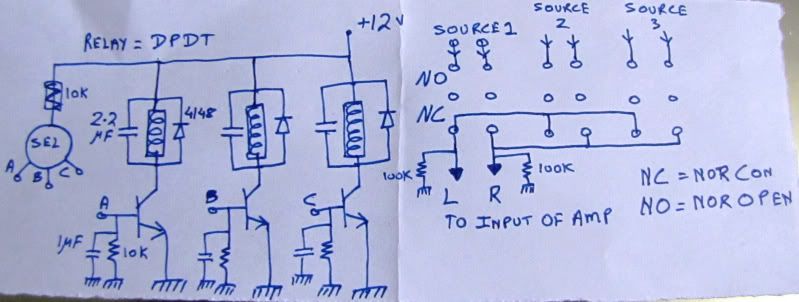 RELAY = DPDT
+12V
10K
SEL
A
B
C
2.2
µF
4148
A
B
C
1µF
10K
SOURCE 1
SOURCE
2
SOURCE
3
NO
NC
100K
100K
L
R
TO INPUT OF AMP
NC = NOR CON
NO = NOR OPEN